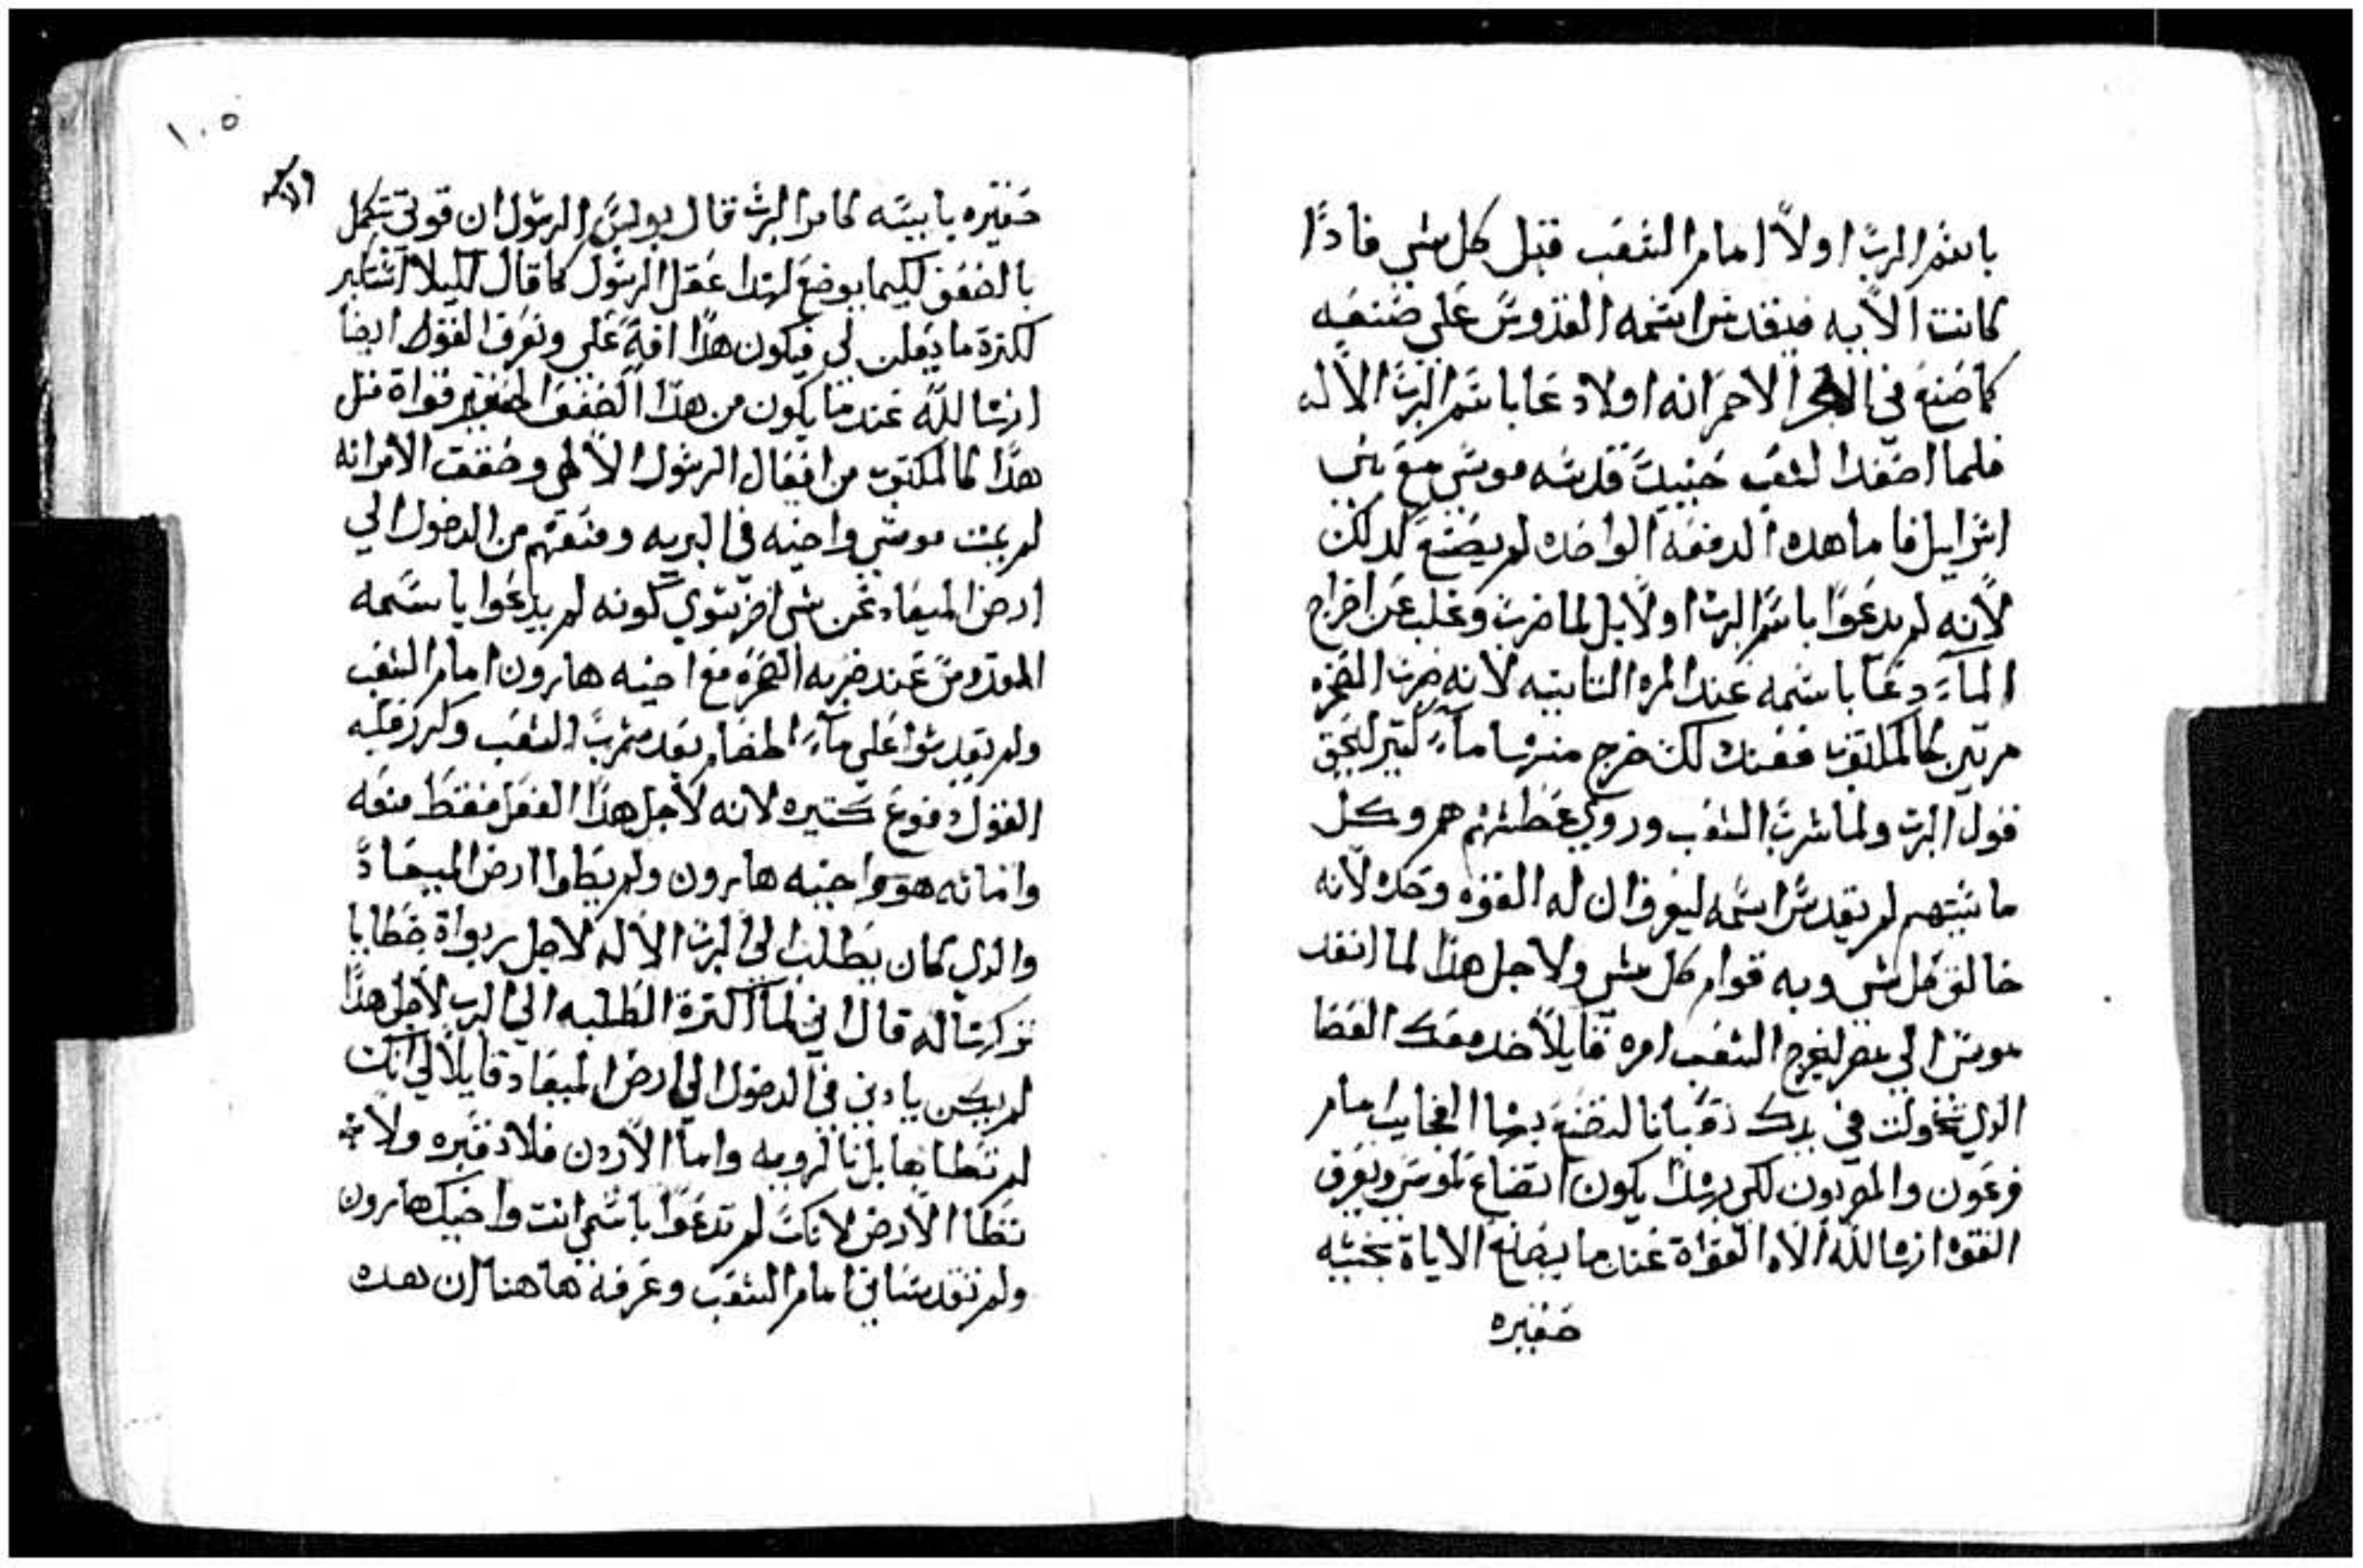 باسم الرب اولاً امام الشعب قبل كل شي فاداً
كانت الايه فيتقدس اسمه القدوس علي صنعه
كما صنع في البحر الاحمر انه اولا دعا باسم الرب الاله
فلما اصعد الشعب حينيد قدسه موسي مع بني
اسراييل فاما هده الدفعه الواحده لم يصنع كدلك
لانه لم يدعوا باسم الرب اولا بل لما ضرب وغلب عن اخراج
الماء دعا باسمه عند المره التانيه لانه ضرب الصخره
مرتين كالمكتوب فعند دلك خرج منها ماء كتير ليحق
قول الرب ولما شرب الشعب وروي عطشهم هم وكل
ماشيتهم لم يقدس اسمه ليعرف ان له القوه وحده لانه
خالق كل شي وبه قوام كل شي ولاجل هذا لما انفد
موسي الي مصر ليخرج الشعب امره قايلاً خد معك العصا
الدي تحولت في يدك تعبانا لتصنع بها العجايب امام
فرعون والمصريون لكي بهدا يكون اتضاع لموسي ويعرف
القوه انها لله الاه القواة عندما يصنع الاياة بخشبه
صغيره
١٠٥
صغيره يابسه كامر الرب قال بولس الرسول ان قوتي تكمل
بالضعف لكيما يوضع لهدا عقل الرسول كما قال لكيلا استكبر
لكترة ما يعلن لي فيكون هدا افة علي ونعرف القول ايضا
انها لله عندما يكون من هدا الضعف الصغير قواة متل
هدا كالمكتوب من افعال الرسول الالهي وضعف الامر انه
لم يمت موسي واخيه في البريه ومنعهم من الدخول الي
ارض الميعاد عن شي اخر سوي كونه لم يدعوا باسمه
القدوس عند ضربه الصخره مع اخيه هارون امام الشعب
ولم يقدسوا علي ماء الخصام بعد شرب الشعب وكرر عليه
القول دفوع كتيره لانه لاجل هدا الفعل فقط منعه
واماته هو واخيه هارون ولم يطوا ارض الميعاد
والدي كان يطلب الي الرب الاله لاجل ربواة خطايا
تركها له قال اني لما اكترة الطلبه الي الرب لاجل هدا
لم يكن يادن في الدخول الي ارض الميعاد قايلا لي انك
لم تطاها بل تا لرويه واما الاردن فلا تعبره ولا
تطا الارض لانك لم تدعوا باسمي انت واخيك هارون
ولم تقدساني امام الشعب وعرفه هاهنا ان هده